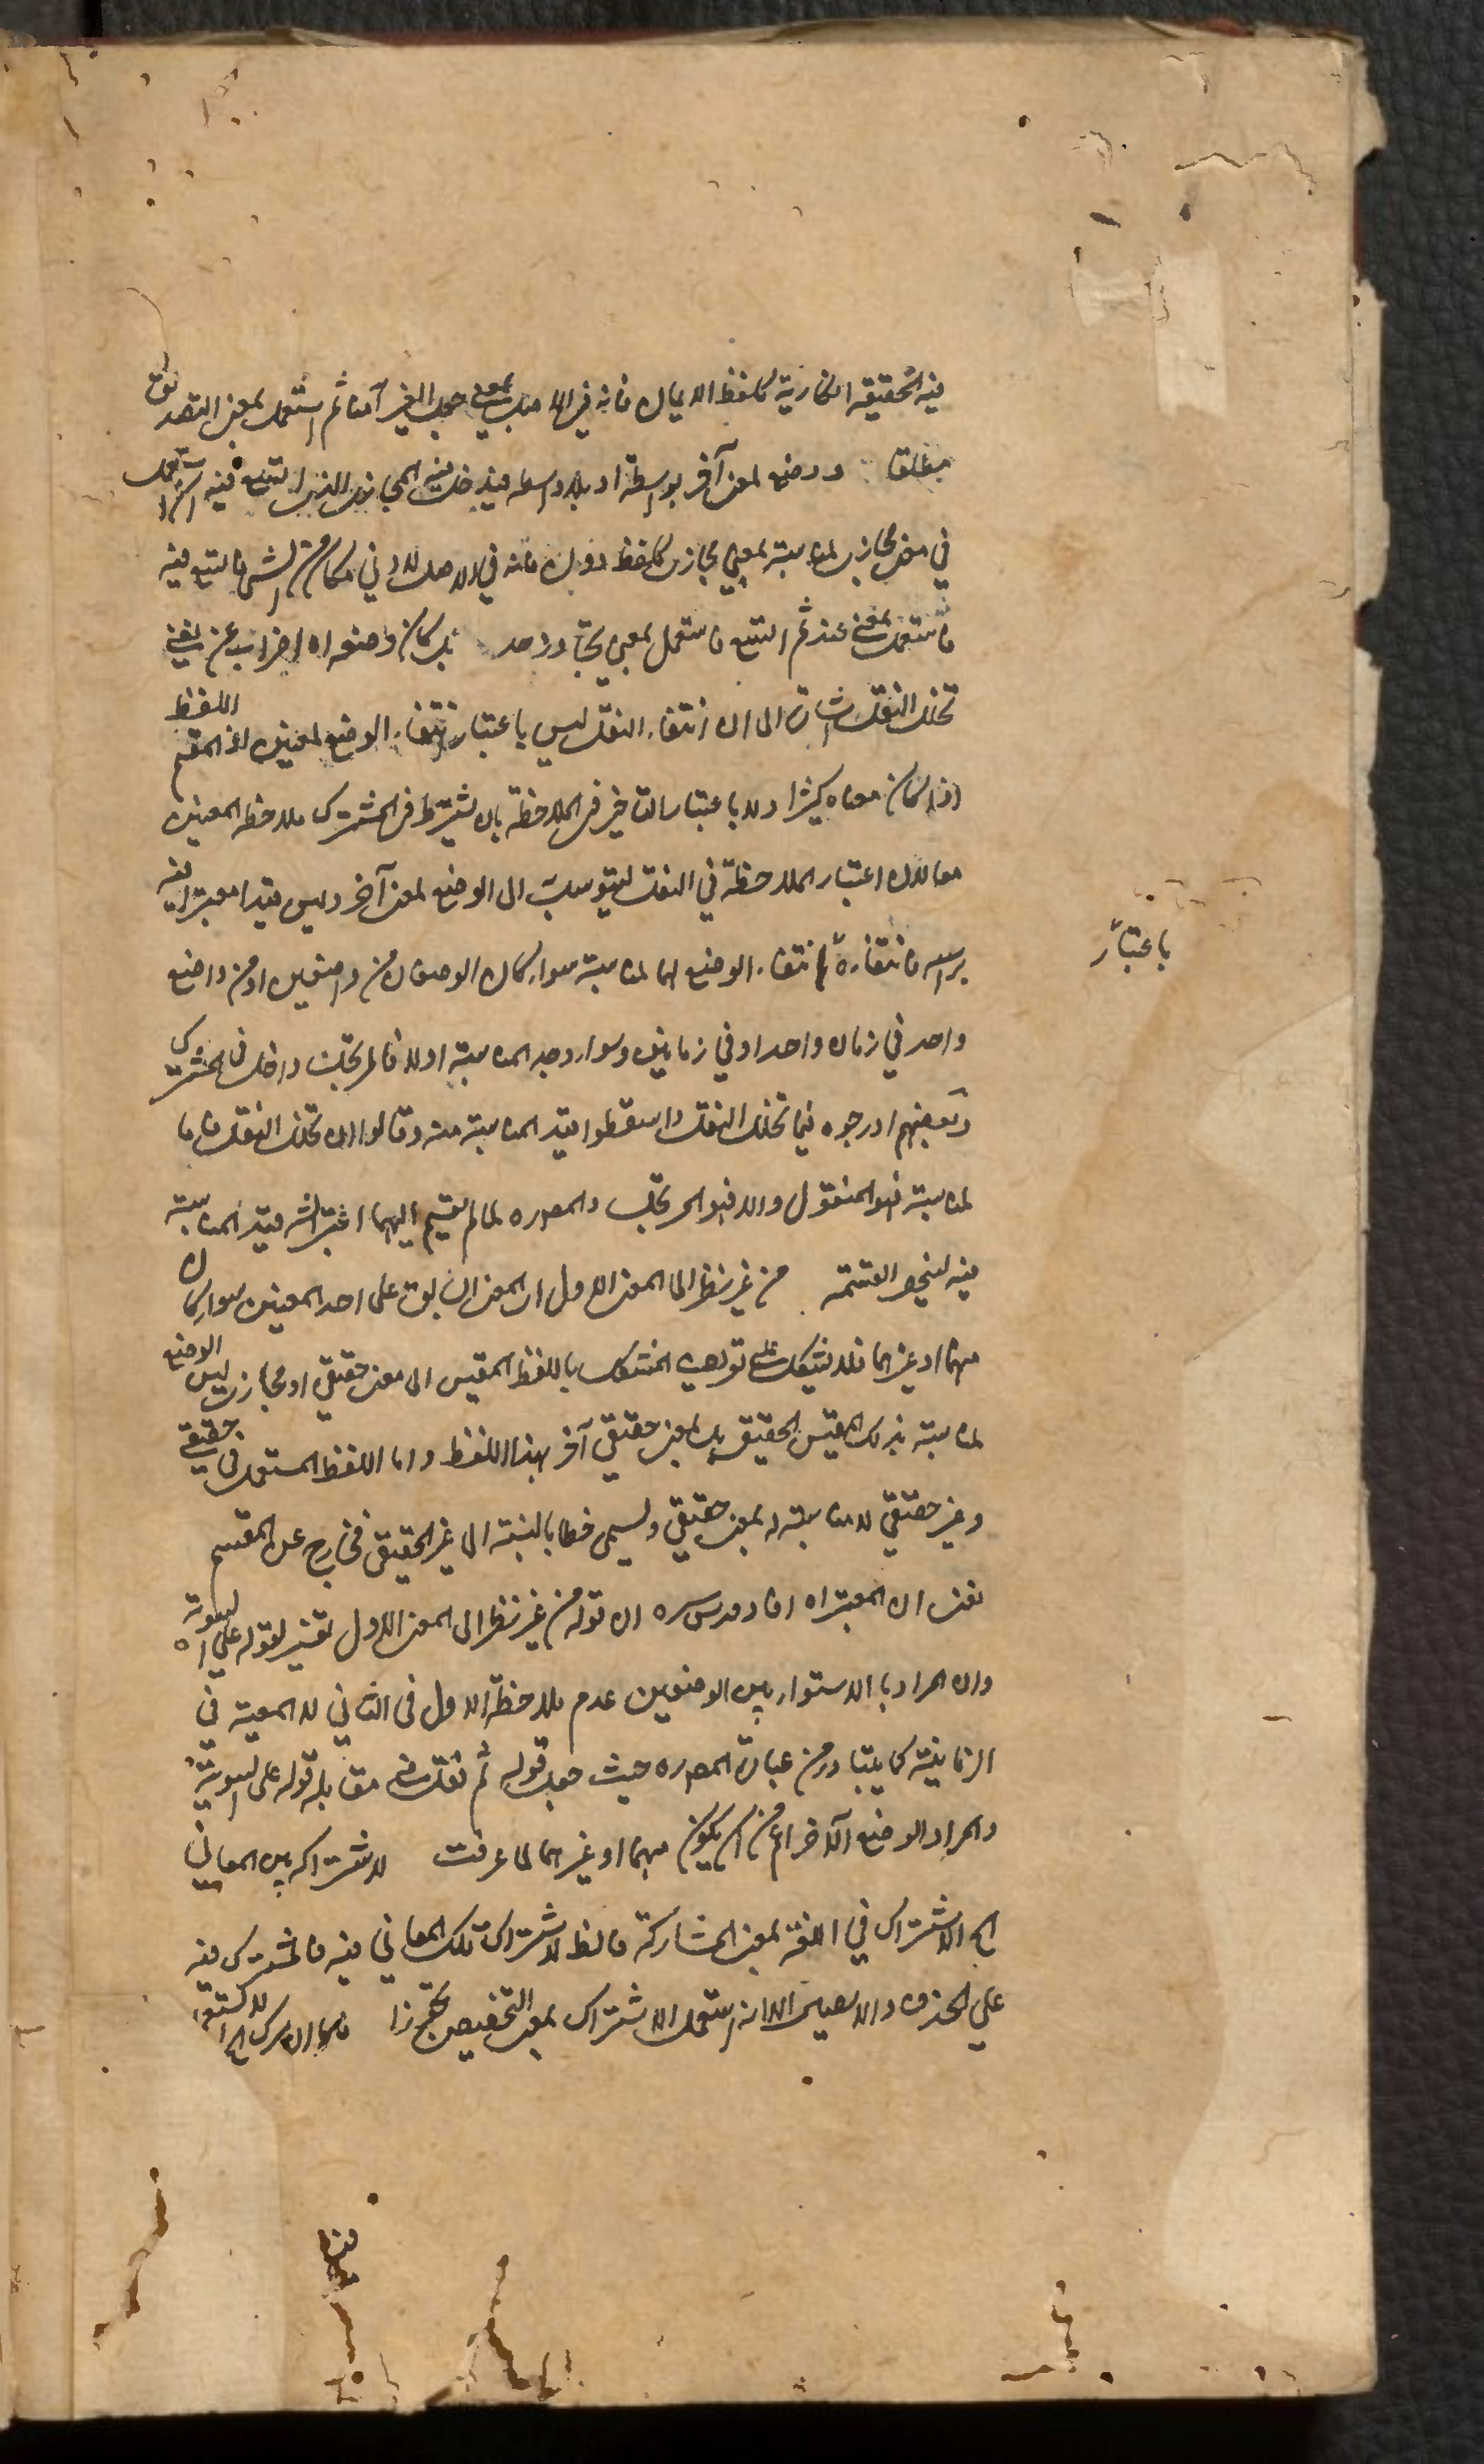 فيه الحقيقة الطارية كلفظ الايمان فانه في اللغة بمعنى جعل الغير آمنا ثم استعمل بمعنى التصديق
مطلقا ووضع لمعنى آخر بواسطة او بلا واسطة فيدخل فيه المجاز الذي اتسع فيه استعمل
في معنى مجازي لمناسبة لمعنى مجازي كلفظ دون فانه في الاصل لادنى مكان من الشيء فاتسع فيه
فاستعمل بمعنى عند ثم اتسع فاستعمل بمعنى تجاوز حد بل كان وضعه اه اضراب عن يعني
تخلل النقل اشارة الى ان انتفاء النقل ليس باعتبار انتفاء الوضع لمعنيين اذ المقسم اللفظ
اذا كان معناه كثيرا ولا باعتبار التأخير في الملاحظة بان يشترط في المشترك ملاحظة المعنيين
معا لان اعتبار الملاحظة في النقل ليتوسل الى الوضع لمعنى آخر وليس قيدا معتبرا فيه
برأسه فانتفاؤه انتفاء الوضع لهما لمناسبة سواء كان الوضعان من واضعين او من واضع
باعتبار
واحد في زمان واحد او في زمانين وسواء وجد المناسبة او لا فالمرتجل داخل في المشترك
وبعضهم ادرجوه فيما تخلل النقل واسقطوا قيد المناسبة منه وقالوا ان تخلل النقل فاما
لمناسبة فهو المنقول والا فهو المرتجل والمص ره لما لم يقسم اليهما اعتبر الش قيد المناسبة
فيه لينحصر القسمة من غير نظر الى المعنى الاول اي المعنى السابق على احد المعنيين سواء كان
منهما او غيرهما فلا يشكل على تعريف المشكل باللفظ المقيس الى معنى حقيقي او مجازي ليس الوضع
لمناسبة بذلك المقيس الحقيقي بل لمعنى حقيقي آخر بهذا اللفظ واما اللفظ المستعمل في حقيقي
وغير حقيقي لا مناسبة له بمعنى حقيقي ويسمى خطا بالنسبة الى غير الحقيقي فخارج عن المقسم
يعني ان المعتبر اه افاد قدس سره ان قوله من غير نظر الى المعنى الاول تفسير لقوله على السوية اه
وان المراد بالاستواء بين الوضعين عدم ملاحظة الاول في الثاني لا المعية في
الزمانية كما يتبادر من عبارة المص ره حيث جعل قوله ثم نقل في مقابلة قوله على السوية
والمراد الوضع الآخر اعم من ان يكون منهما او غيرهما لما عرفت لاشتراكه بين المعاني
الخ الاشتراك في اللغة بمعنى المشاركة فالظ لاشتراك تلك المعاني فيه فالمشترك فيه
على الحذف والايصال الا انه استعمل الاشتراك بمعنى التخصيص تجوزا